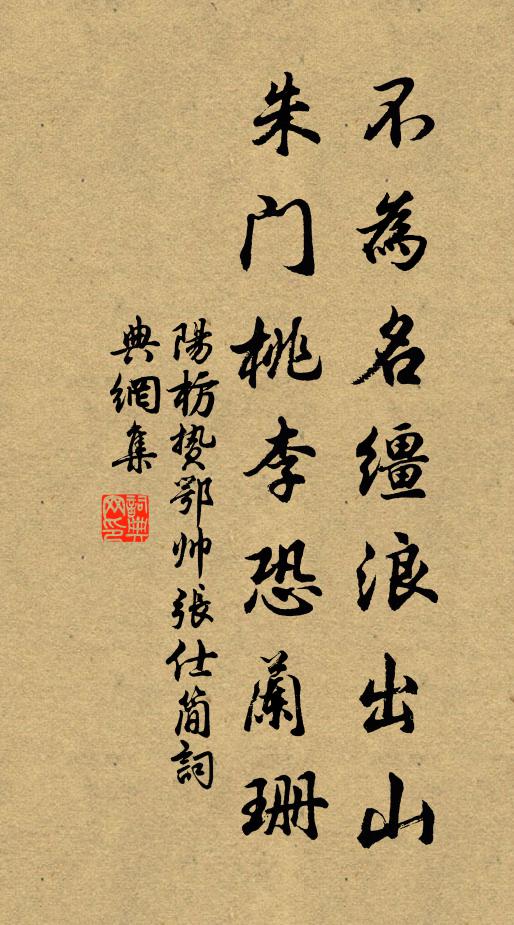 不為名繮浪出山
朱门桃李恐蘭珊
陽枋贄鄂帅張仕簡詞
典網集
詞典
网印